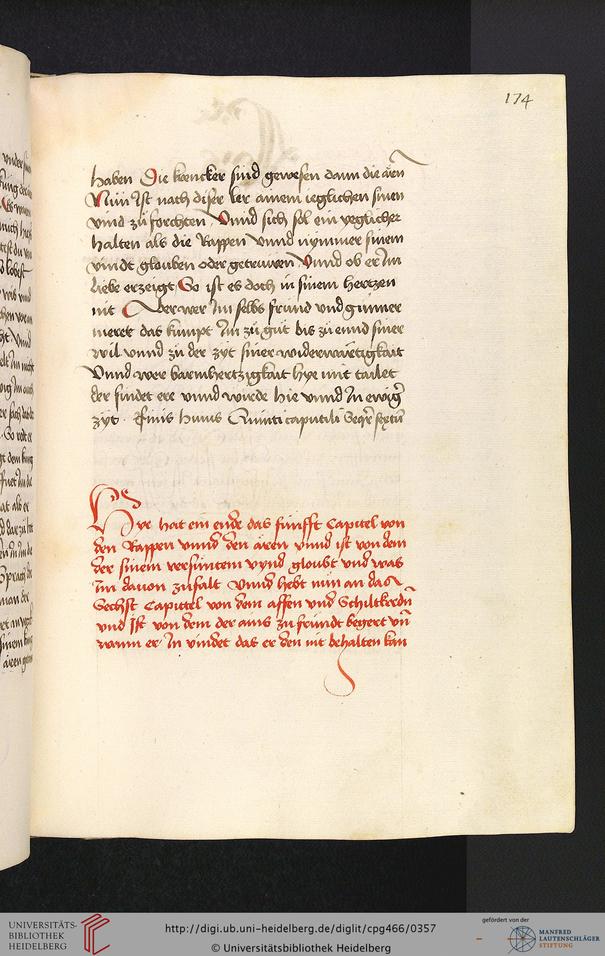 174
haben Die krencker sind gewesen dann die aren
Nun Ist nach diser ler ainem ieglichen sinen
vind zu forchten Vnnd sich sol ein yeglicher
halten als die Rappen vnnd nymmer sinem
vinde glouben oder getruwen Vnnd ob er Im
liebe erzeigt So ist es doch in sinem hertzen
nit Aber wer Im selbs frund vnd gunner
meret das kumpt Im zu gut bis zu ennd siner
wil vnnd zu der zyt siner widerwärtigkait
Vnnd wer barmhertzigkait hye mit tailet
der findet ere vnnd wirde hie vnnd In ewig
zyt Finis huius Quinti capituli Seqr sextu
Hye hat ein ende das funfft Capitel von
den Rappen vnnd den aren vnnd ist von dem
der sinem versunten vynd gloubt vnd was
Im dauon zufalt Vnnd hebt nun an das
Sechst Capittel von dem affen vnd Schiltkrodn
vnd Ist von dem der ains zu frundt begert vn
wann er In vindet das er den nit behalten kan
UNIVERSITÄTS-
BIBLIOTHEK
HEIDELBERG
http://digi.ub.uni-heidelberg.de/diglit/cpg466/0357
© Universitätsbibliothek Heidelberg
gefördert von der
MANFRED
LAUTENSCHLÄGER
STIFTUNG